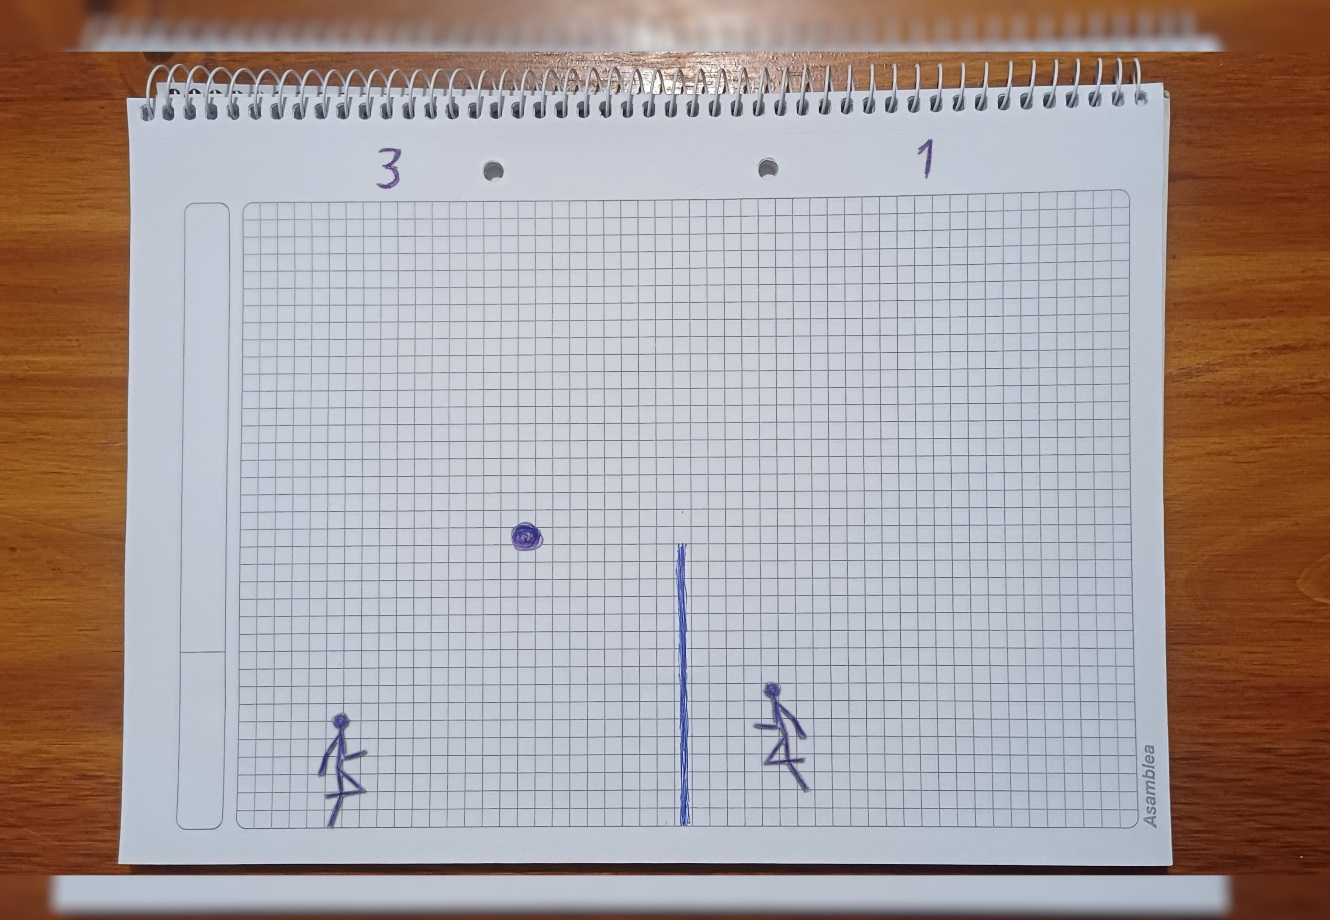 3 1
Asamblea